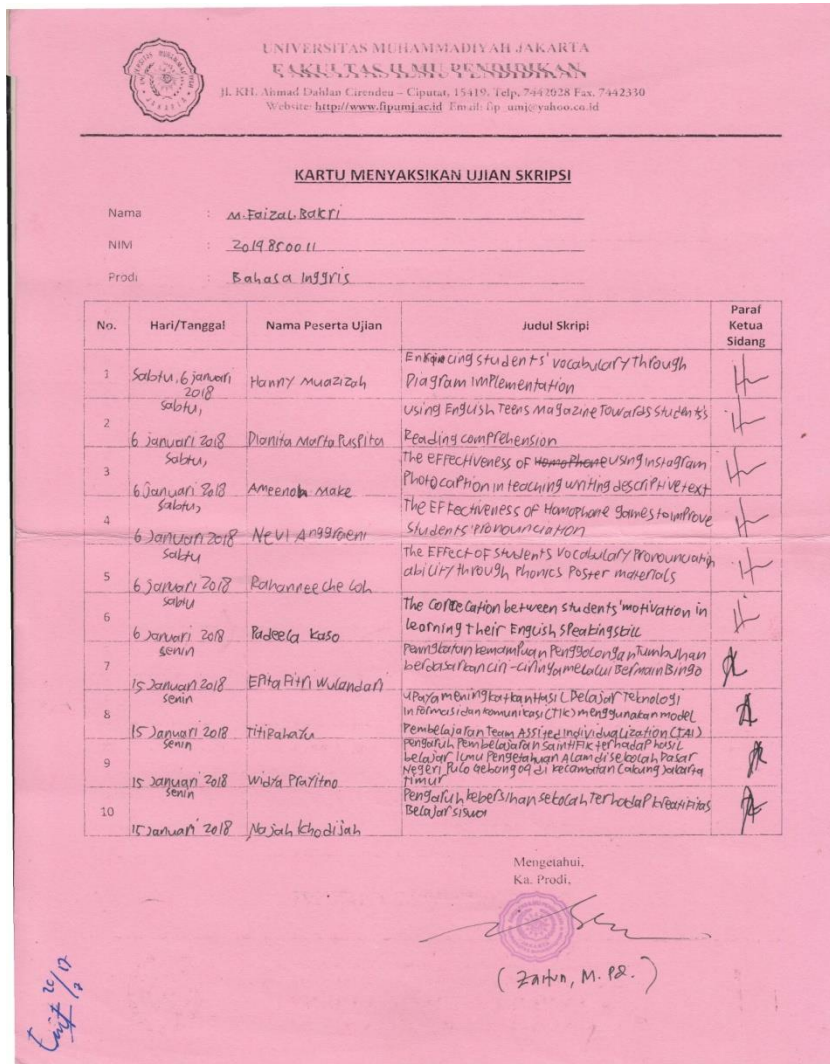 UNIVERSITAS MUHAMMADIYAH JAKARTA
FAKULTAS ILMU PENDIDIKAN
Jl. KH. Ahmad Dahlan Cirendeu – Ciputat, 15419, Telp. 7442028 Fax. 7442330
Website: http://www.fipumj.ac.id Email: fip_umj@yahoo.co.id
KARTU MENYAKSIKAN UJIAN SKRIPSI
Nama : M. Faizal Bakri
NIM : 2019850011
Prodi : Bahasa Inggris
No. Hari/Tanggal Nama Peserta Ujian Judul Skripi Paraf Ketua Sidang
1 Sabtu, 6 januari 2018 Hanny Muazizah students' vocabulary Through Diagram implementation
2 Sabtu, 6 januari 2018 Dianita Marta Puspita Using English Teens Magazine Towards Students Reading comprehension
3 Sabtu, 6 Januari 2018 Ameenah Make The Effectiveness of Homophone using instagram Photo caption in teaching writing descriptive text
4 Sabtu, 6 Januari 2018 Nevi Anggraeni The Effectiveness of Homophone games to improve students' Pronounciation
5 Sabtu 6 januari 2018 Rohannee che Loh The Effect of Students Vocabulary Pronounciation ability through Phonics Poster materials
6 Sabtu 6 Januari 2018 Padeela Kaso The Correlation between students' motivation in learning Their English Speaking
7 Senin 15 Januari 2018 Epita Fitri Wulandari kemampuan Penggolongan Tumbuhan berdasarkan ciri-cirinya melalui Bermain Bingo
8 Senin 15 Januari 2018 Titi Rahayu Upaya meningkatkan Hasil Belajar Teknologi Informasi dan komunikasi (TIK) menggunakan model Pembelajaran Team Assited Individualization (TAI)
9 Senin 15 Januari 2018 Widya Prayitno Pengaruh Pembelajaran Saintifik terhadap hasil belajar Ilmu Pengetahuan Alam di sekolah Dasar Negeri Pulo Gebang 09 di kecamatan Cakung Jakarta Timur
10 Senin 15 Januari 2018 Najah Khodijah Pengaruh kebersihan sekolah Terhadap kreatifitas Belajar siswa
Mengetahui,
Ka. Prodi,
(Zaitun, M. Pd.)